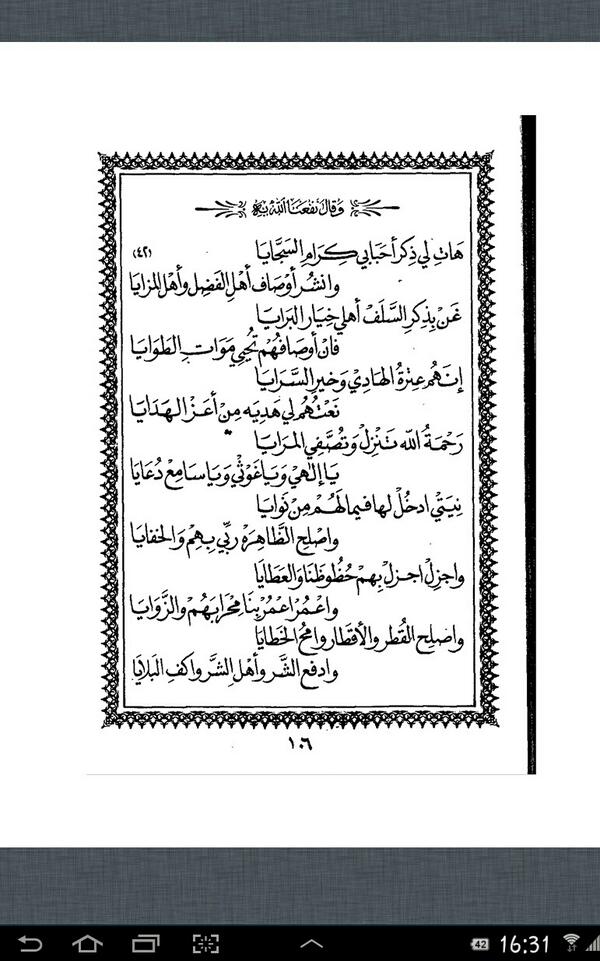 وَقَالَ نَفَعَنَا اللّٰهُ بِهِ
هَاتِ لِي ذِكرَ أحبَابِي كِرَامِ السَجَايَا (٤٢)
وانشُر أوصَاف أهْلِ الفَضِل وأهْل المزايَا
غَنِّ بِذِكرِ السَّلَفْ أهلِي خِيَار البَرَايَا
فَانْ أوصَافهُم تُحْيِي مَوَاتِ الطَوَايَا
إنَهُم عِترَةُ الهَادِيْ وَخَيرِ السَّرَايَا
نَعتُهُم لِي هَدِيَه مِنْ أعَزْ الهَدَايَا
رَحْمَةُ اللّه تَنزِلْ وَتُصَفِّي المَرايَا
يَا إلٰهِيْ وَيَا غَوثِيْ وَيَا سَامِعْ دُعَايَا
نِيَتِي ادخُلْ لهَا فيمَا لَهُمْ مِنْ نَوَايَا
واصلِح الظَّاهِرَهْ رَبِّي بِهِمْ وَالخفَايَا
واجزِلْ اجزِل بِهِمْ حُظُوظنَا وَالعَطَايَا
واعْمُرْ اعْمُرْ بِنَا مِحْرَابَهُمْ والزَّوَايَا
واصلِح القُطرْ والأقطَار وامحُ الخَطَايَا
وادفع الشَّر وأهْل الشَّر واكفِ البَلَايَا
١٠٦
42
16:31